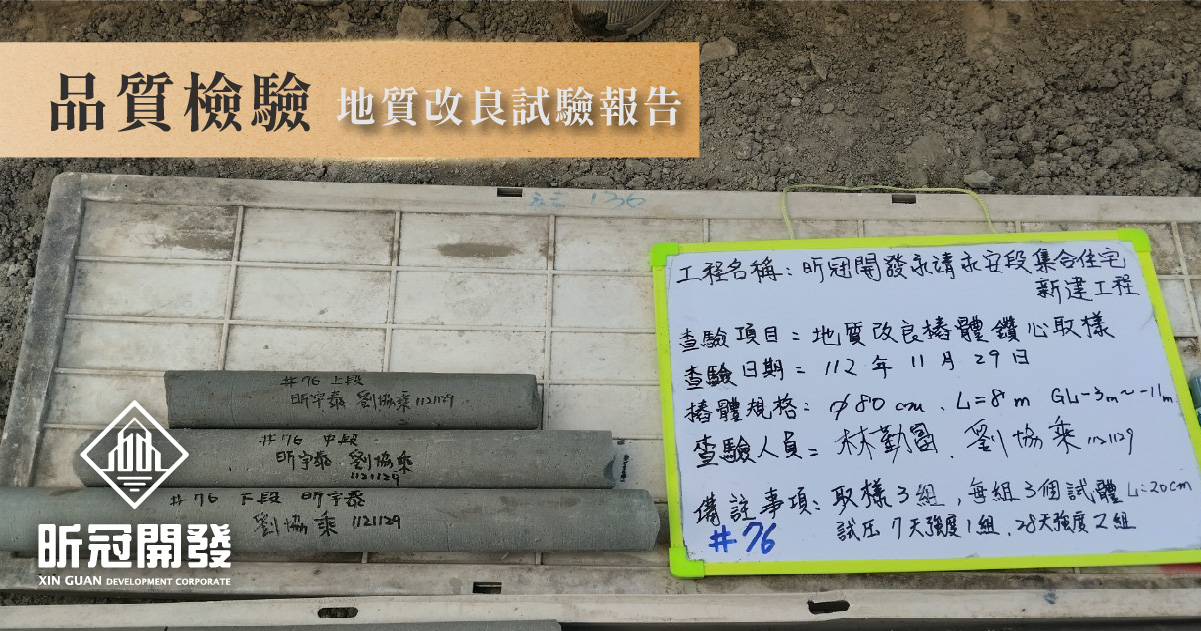 品質檢驗 地質改良試驗報告
工程名稱：昕冠開發永靖永安段集合住宅
新建工程
查驗項目：地質改良樁體鑽心取樣
查驗日期：112年11月29日
樁體規格：ϕ80cm、L=8m GL-3m~-11m
查驗人員：林勤富、劉協乘 1121129
備註事項：取樣3組，每組3個試體L=20cm
試压7天強度1組，28天強度2組
#76
#76 上段
昕宇泰 劉協乘 1121129
#76 中段
昕宇泰 劉協乘
1121129
#76 下段 昕宇泰
劉協乘 1121129
昕冠開發
XIN GUAN DEVELOPMENT CORPORATE